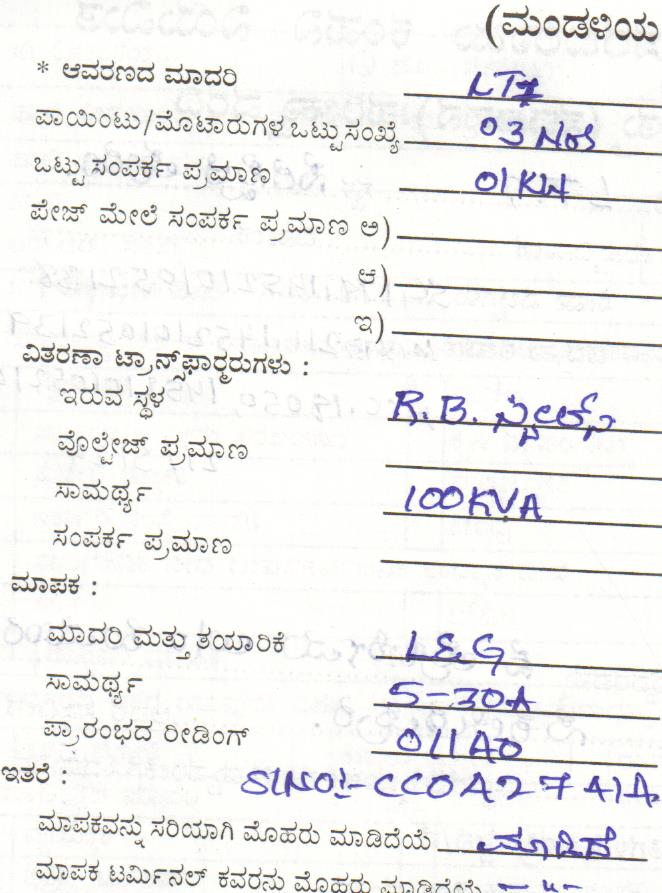 (ಮಂಡಳಿಯ
* ಆವರಣದ ಮಾದರಿ
ಪಾಯಿಂಟು/ಮೊಟಾರುಗಳ ಒಟ್ಟು ಸಂಖ್ಯೆ 03 Nos
ಒಟ್ಟು ಸಂಪರ್ಕ ಪ್ರಮಾಣ 01 KW
ಪೇಜ್ ಮೇಲೆ ಸಂಪರ್ಕ ಪ್ರಮಾಣ ಅ)
ಆ)
ಇ)
ವಿತರಣಾ ಟ್ರಾನ್ಸ್‌ಫಾರ್ಮರುಗಳು :
ಇರುವ ಸ್ಥಳ R.B. ಸ್ಟೀಲ್ಸ್
ವೊಲ್ಟೇಜ್ ಪ್ರಮಾಣ
ಸಾಮರ್ಥ್ಯ 100KVA
ಸಂಪರ್ಕ ಪ್ರಮಾಣ
ಮಾಪಕ :
ಮಾದರಿ ಮತ್ತು ತಯಾರಿಕೆ L&G
ಸಾಮರ್ಥ್ಯ 5-30A
ಪ್ರಾರಂಭದ ರೀಡಿಂಗ್
ಇತರೆ :
ಮಾಪಕವನ್ನು ಸರಿಯಾಗಿ ಮೊಹರು ಮಾಡಿದೆಯೆ ಮಾಡಿದೆ
ಮಾಪಕ ಟರ್ಮಿನಲ್ ಕವರನು ಮೊಹರು ಮಾಡಿದೆಯೆ